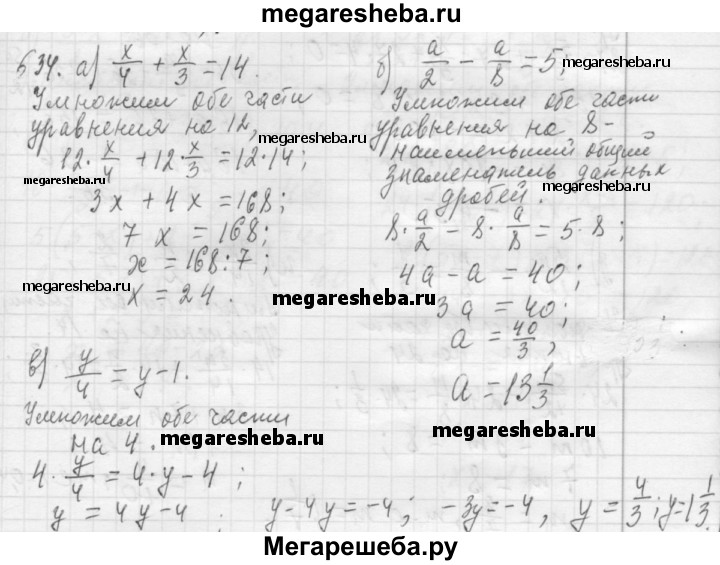 megaresheba.ru
634. а) x/4 + x/3 = 14.
Умножим обе части
уравнения на 12,
12·x/4 + 12·x/3 = 12·14;
3x + 4x = 168;
7x = 168;
x = 168:7;
x = 24.
б) a/2 - a/8 = 5;
Умножим обе части
уравнения на 8-
наименьший общий
знаменатель данных
дробей.
8·a/2 - 8·a/8 = 5·8;
4a - a = 40;
3a = 40;
a = 40/3,
a = 13 1/3
в) y/4 = y-1.
Умножим обе части
на 4.
4·y/4 = 4·y-4;
y = 4y-4. y-4y=-4; -3y=-4, y = 4/3; y=1 1/3.
megaresheba.ru
megaresheba.ru
megaresheba.ru
megaresheba.ru
megaresheba.ru
megaresheba.ru
megaresheba.ru
megaresheba.ru
Мегарешеба.ру